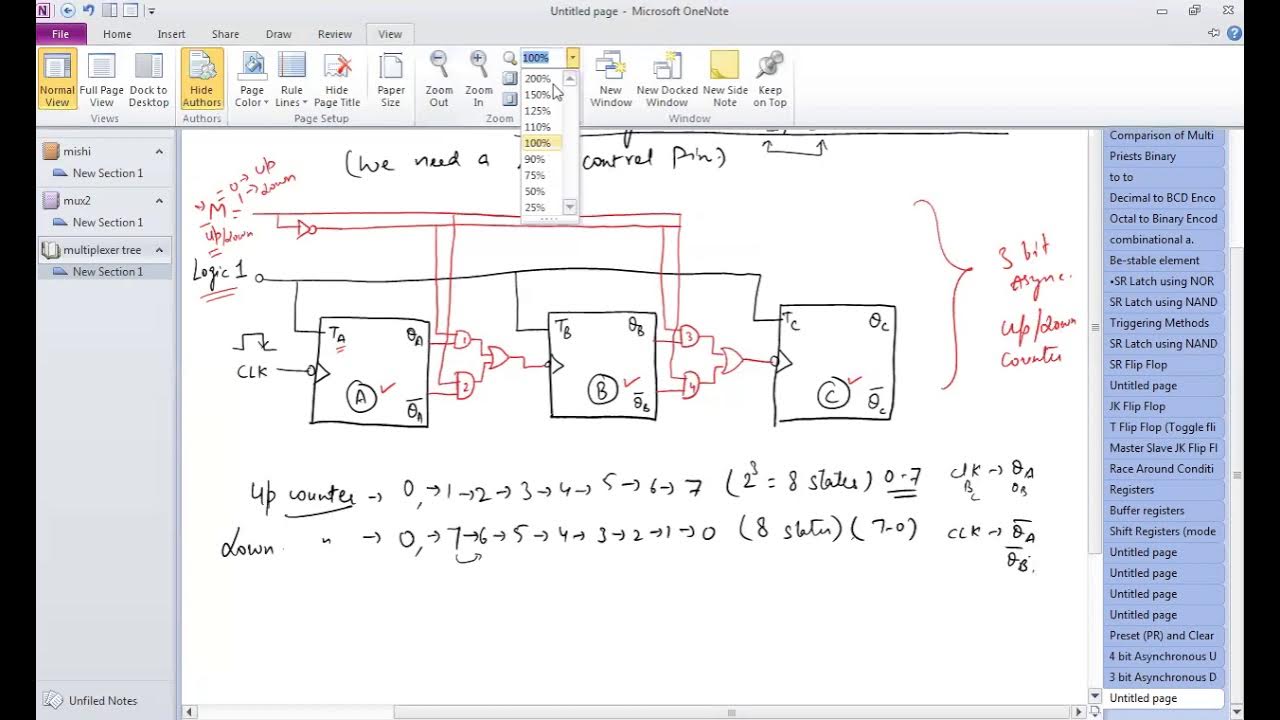 Untitled page - Microsoft OneNote
File Home Insert Share Draw Review View
Normal View
Full Page View
Dock to Desktop
Views
Hide Authors
Authors
Page Color
Rule Lines
Hide Page Title
Page Setup
Paper Size
Zoom Out
Zoom In
Zoom
100%
200%
150%
125%
110%
100%
90%
75%
50%
25%
New Window
New Docked Window
New Side Note
Keep on Top
Window
mishi
New Section 1
mux2
New Section 1
multiplexer tree
New Section 1
Unfiled Notes
(We need a control pin)
0 → up
1 → down
M =
up/down
Logic 1
CLK
T_A Q_A
A
Q̅_A
1
2
T_B Q_B
B
Q̅_B
3
4
T_C Q_C
C
Q̅_C
3 bit
Async.
up/down
counter
Up counter → 0, → 1 → 2 → 3 → 4 → 5 → 6 → 7 (2³ = 8 states) 0-7 clk → Q_A
B C Q_B
Down " → 0, → 7 → 6 → 5 → 4 → 3 → 2 → 1 → 0 (8 states) (7-0) CLK → Q̅_A
Q̅_B.
Comparison of Multi
Priests Binary
to to
Decimal to BCD Enco
Octal to Binary Encod
combinational a.
Be-stable element
•SR Latch using NOR
SR Latch using NAND
Triggering Methods
SR Latch using NAND
SR Flip Flop
Untitled page
JK Flip Flop
T Flip Flop (Toggle fli
Master Slave JK Flip Fl
Race Around Conditi
Registers
Buffer registers
Shift Registers (mode
Untitled page
Untitled page
Untitled page
Untitled page
Preset (PR) and Clear
4 bit Asynchronous U
3 bit Asynchronous D
Untitled page